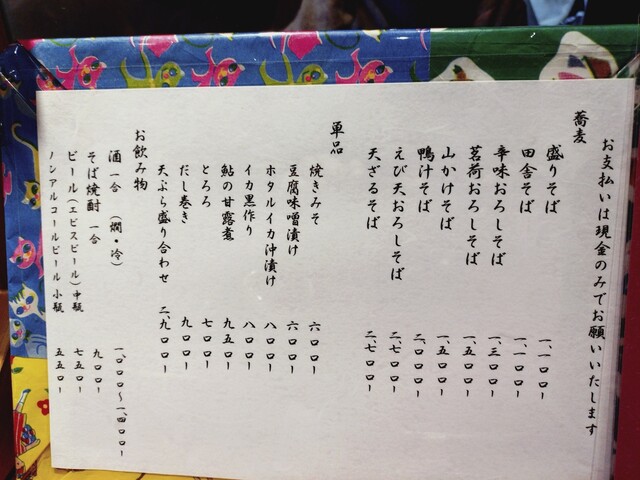 お支払いは現金のみでお願いいたします
蕎麦
盛りそば 一、一〇〇ー
田舎そば 一、一〇〇ー
辛味おろしそば 一、三〇〇ー
茗荷おろしそば 一、五〇〇ー
山かけそば 一、五〇〇ー
鴨汁そば 二、〇〇〇ー
えび天おろしそば 二、七〇〇ー
天ざるそば 二、七〇〇ー
単品
焼きみそ 六〇〇ー
豆腐味噌漬け 六〇〇ー
ホタルイカ沖漬け 八〇〇ー
イカ黒作り 八〇〇ー
鮎の甘露煮 九五〇ー
とろろ 七〇〇ー
だし巻き 九〇〇ー
天ぷら盛り合わせ 二、九〇〇ー
お飲み物
酒 一合 （燗・冷） 一、〇〇〇〜一、四〇〇ー
そば焼酎 一合 九〇〇ー
ビール（エビスビール）中瓶 七五〇ー
ノンアルコールビール 小瓶 五五〇ー